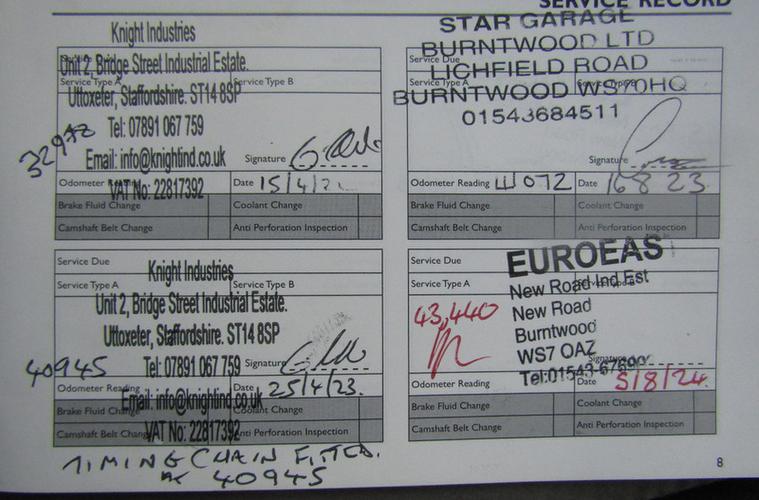 SERVICE RECORD
Knight Industries
Unit 2, Bridge Street Industrial Estate.
Service Type A Service Type B
Uttoxeter, Staffordshire. ST14 8SP
Tel: 07891 067 759
32972
Email: info@knightind.co.uk
Signature
Odometer Reading Date 15/4/2
VAT No: 22817392
Brake Fluid Change Coolant Change
Camshaft Belt Change Anti Perforation Inspection
STAR GARAGE
BURNTWOOD LTD
Service Due
LICHFIELD ROAD
Service Type A
BURNTWOOD WS70HQ
01543684511
Signature
Odometer Reading 41072 Date 16 8 23
Brake Fluid Change Coolant Change
Camshaft Belt Change Anti Perforation Inspection
Service Due
Knight Industries
Service Type A Service Type B
Unit 2, Bridge Street Industrial Estate.
Uttoxeter, Staffordshire. ST14 8SP
40945 Tel: 07891 067 759 Signature
Odometer Reading Date 25/4/23.
Email: info@knightind.co.uk
Brake Fluid Change Coolant Change
Camshaft Belt Change VAT No: 22817392 Anti Perforation Inspection
TIMING CHAIN FITTED.
40945
Service Due
EUROEAST
Service Type A
New Road Ind Est
43,440 New Road
Burntwood
WS7 OAZ
Signature
Tel:01543
Odometer Reading Date 5/8/24.
Brake Fluid Change Coolant Change
Camshaft Belt Change Anti Perforation Inspection
8